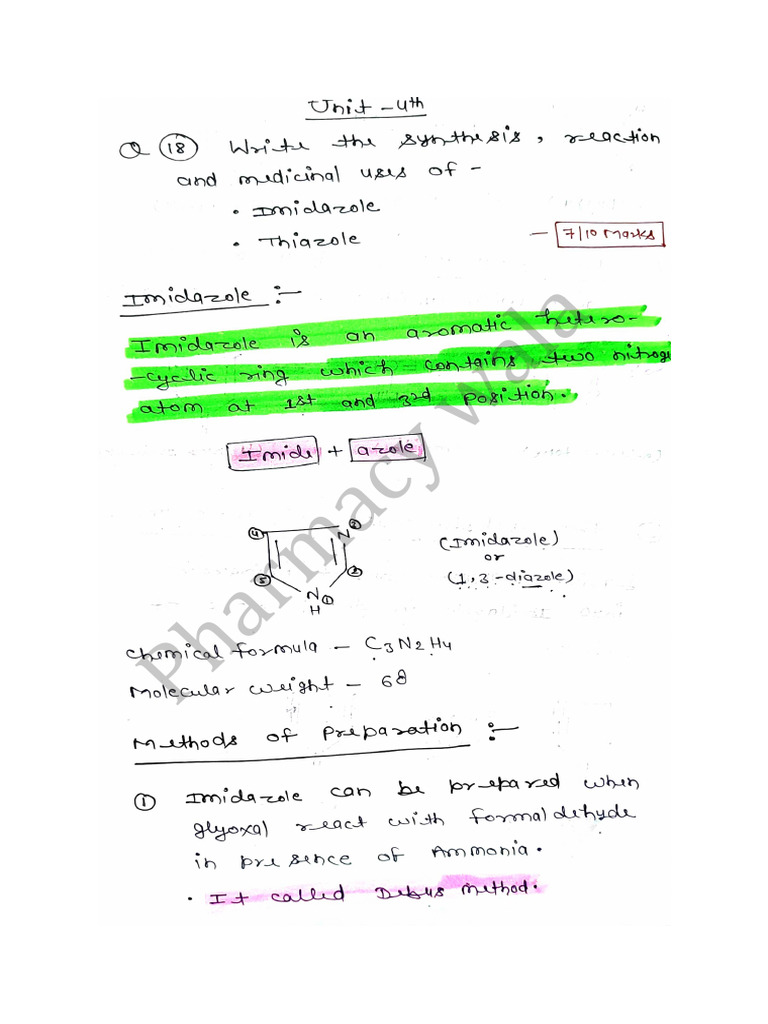 Unit - 4th
Q 18 Write the synthesis, reaction
and medicinal uses of -
• Imidazole
• Thiazole
- 7/10 Marks
Imidazole :-
Imidazole is an aromatic hetero-
-cyclic ring which contains two nitroge
atom at 1st and 3rd position.
Imide + azole
4 N 3
5 2
N 1
H
(Imidazole)
or
(1,3-diazole)
Chemical formula - C3N2H4
Molecular weight - 68
Methods of Preparation :-
① Imidazole can be prepared when
glyoxal react with formaldehyde
in presence of Ammonia.
• It called Debus method.
Pharmacy wala